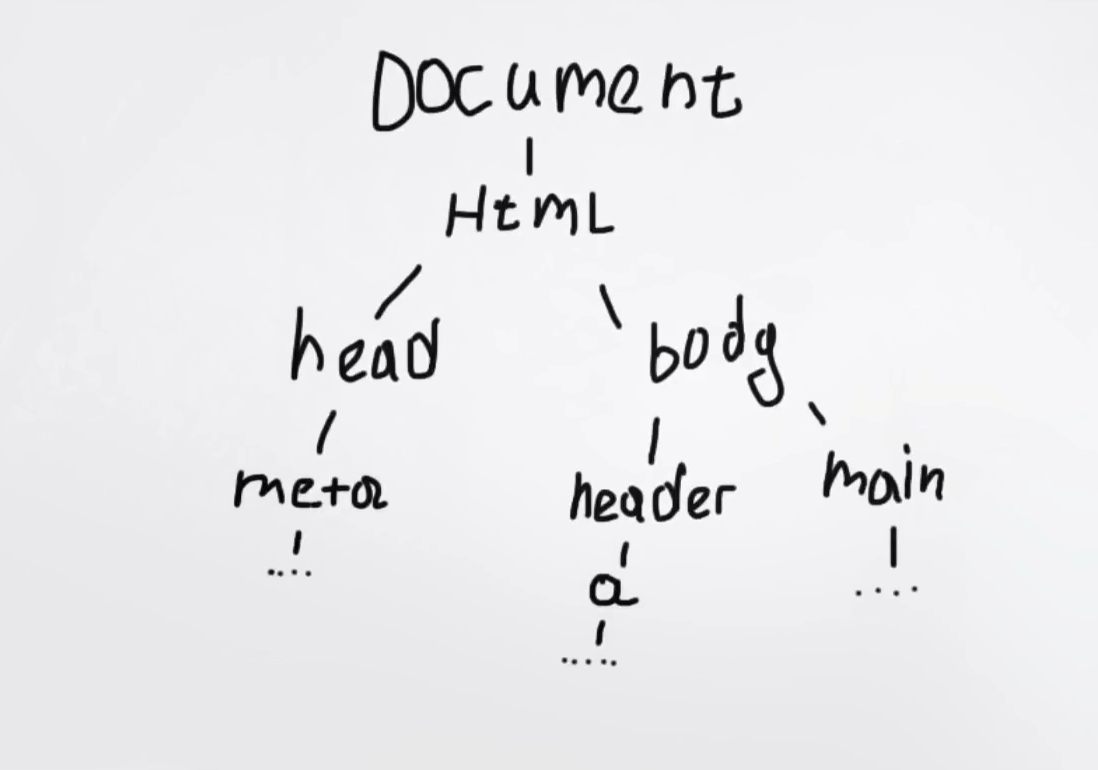 Document
HtmL
head
body
meta
header
main
....
a
....
.....